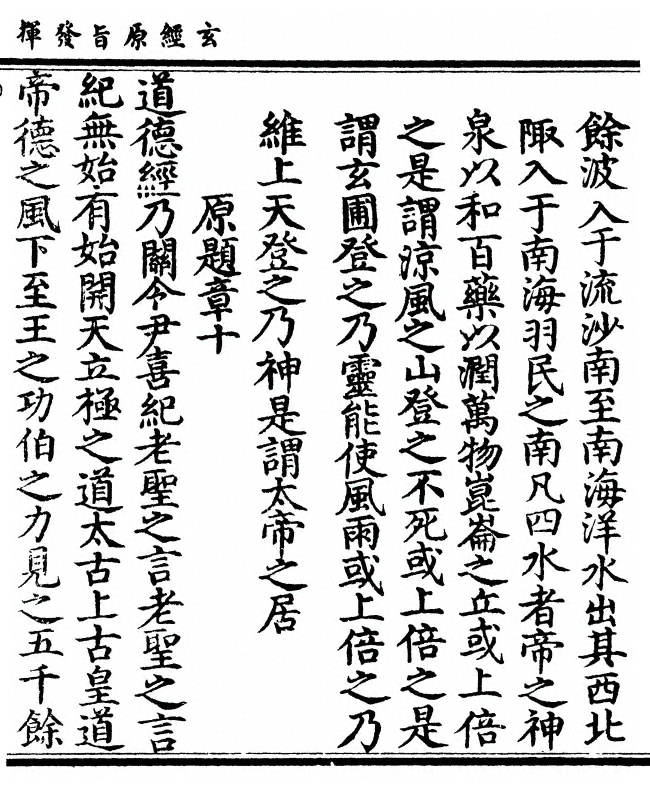 玄經原旨發揮
餘波入于流沙南至南海洋水出其西北
陬入于南海羽民之南凡四水者帝之神
泉以和百藥以潤萬物崑崙之丘或上倍
之是謂涼風之山登之不死或上倍之是
謂玄圃登之乃靈能使風雨或上倍之乃
維上天登之乃神是謂太帝之居
原題章十
道德經乃關令尹喜紀老聖之言老聖之言
紀無始有始開天立極之道太古上古皇道
帝德之風下至王之功伯之力見之五千餘